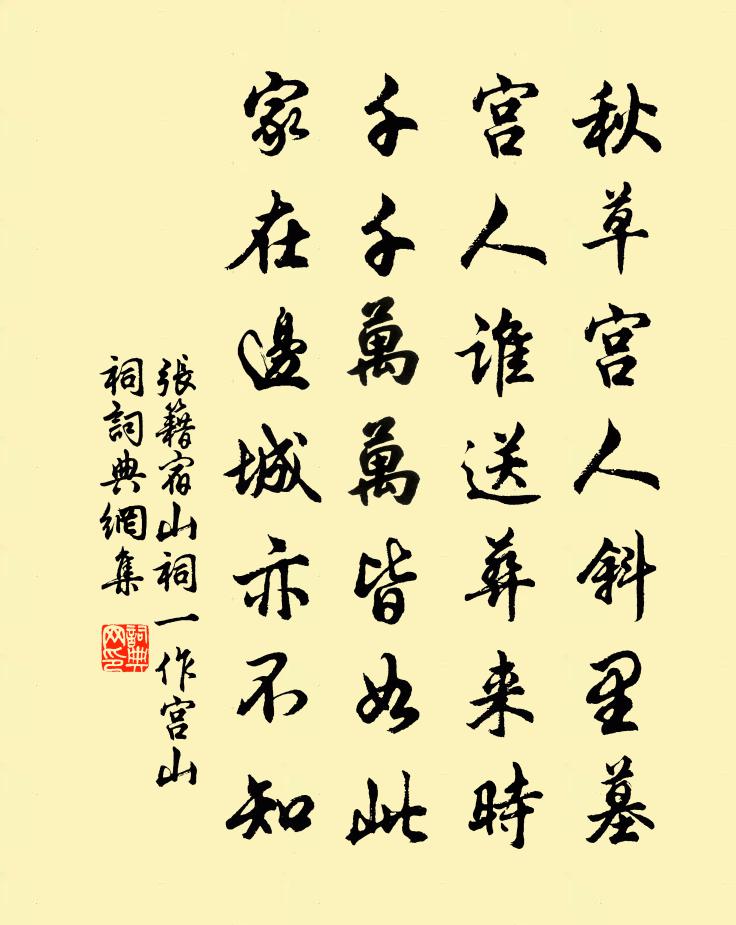 秋草宫人斜里墓
宫人誰送葬来時
千千萬萬皆如此
家在邊城亦不知
張籍宿山祠一作宫山
祠詞典網集
詞典网印